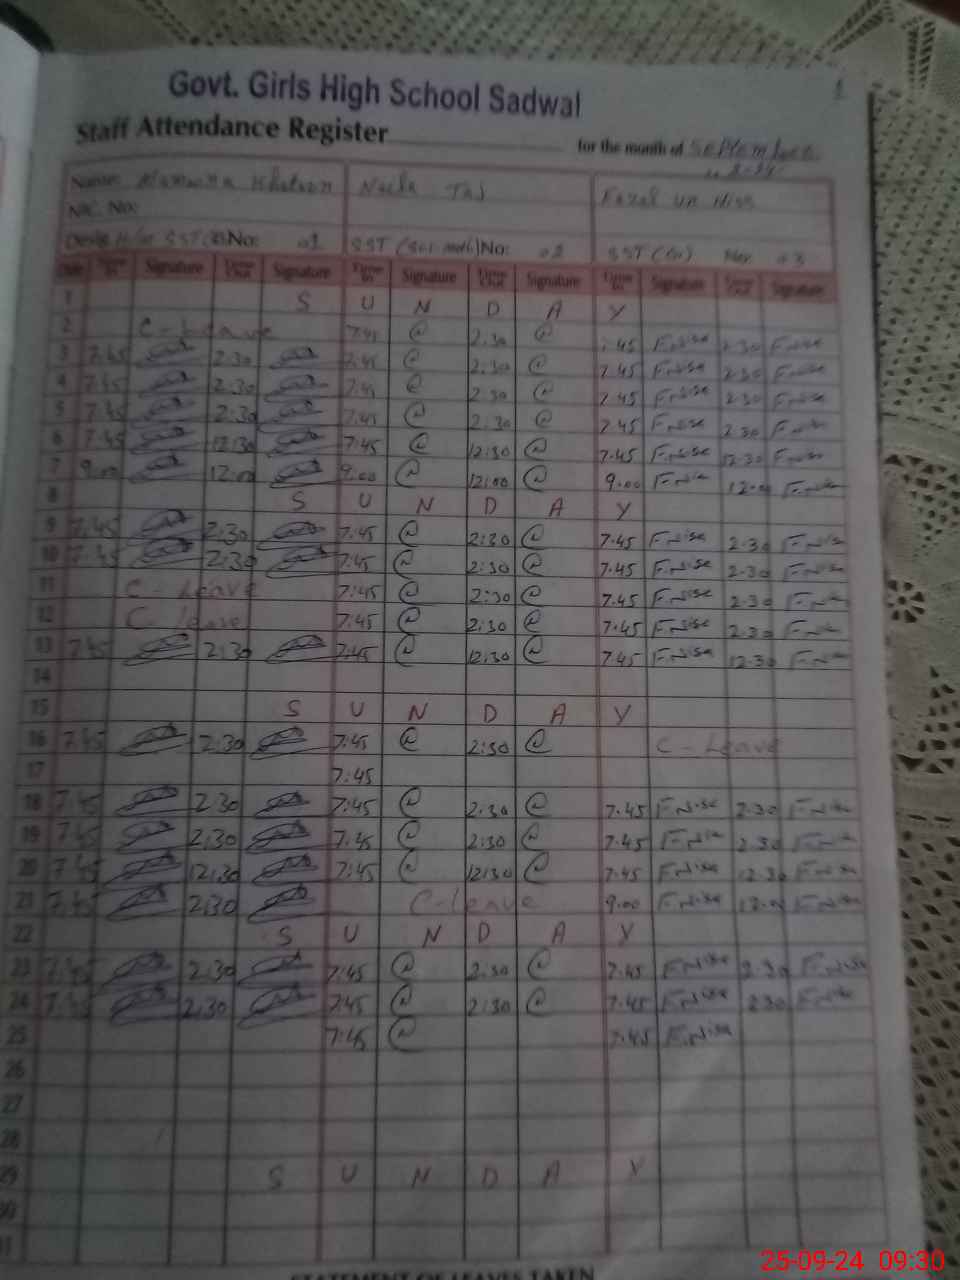 Govt. Girls High School Sadwal
Staff Attendance Register for the month of September
Name: Khatoon Naela Taj Fazal un Nisa
NIC. No:
Desig: SST No: 01 SST (Sci) No: 02 SST No: 03
Date Time In Signature Time Out Signature Time In Signature Time Out Signature Time In Signature Time Out Signature
1 S U N D A Y
2 C-Leave 7:45 @ 2:30 @ 7.45 F.Nisa 2.30 F.Nisa
3 7:45 2:30 7:45 @ 2:30 @ 7.45 F.Nisa 2.30 F.Nisa
4 7:45 2:30 7:45 @ 2:30 @ 7.45 F.Nisa 2.30 F.Nisa
5 7:45 2:30 7:45 @ 2:30 @ 7.45 F.Nisa 2.30 F.Nisa
6 7:45 12:30 7:45 @ 12:30 @ 7.45 F.Nisa 12.30 F.Nisa
7 9:00 12:00 9:00 @ 12:00 @ 9.00 F.Nisa 12.00 F.Nisa
8 S U N D A Y
9 7:45 2:30 7:45 @ 2:30 @ 7.45 F.Nisa 2.30 F.Nisa
10 7:45 2:30 7:45 @ 2:30 @ 7.45 F.Nisa 2.30 F.Nisa
11 C-Leave 7:45 @ 2:30 @ 7.45 F.Nisa 2.30 F.Nisa
12 C-leave 7:45 @ 2:30 @ 7.45 F.Nisa 2.30 F.Nisa
13 7:45 2:30 7:45 @ 12:30 @ 7.45 F.Nisa 12.30 F.Nisa
14
15 S U N D A Y
16 7:45 2:30 7:45 @ 2:30 @ C-Leave
17 7:45
18 7:45 2:30 7:45 @ 2:30 @ 7.45 F.Nisa 2.30 F.Nisa
19 7:45 2:30 7:45 @ 2:30 @ 7.45 F.Nisa 2.30 F.Nisa
20 7:45 12:30 7:45 @ 12:30 @ 7.45 F.Nisa 12.30 F.Nisa
21 7:45 2:30 C-leave 9.00 F.Nisa 12.00 F.Nisa
22 S U N D A Y
23 7:45 2:30 7:45 @ 2:30 @ 7.45 F.Nisa 2.30 F.Nisa
24 7:45 2:30 7:45 @ 2:30 @ 7.45 F.Nisa 2.30 F.Nisa
25 7:45 @ 7.45 F.Nisa
26
27
28
29 S U N D A Y
30
31
STATEMENT OF LEAVES TAKEN
25-09-24 09:30